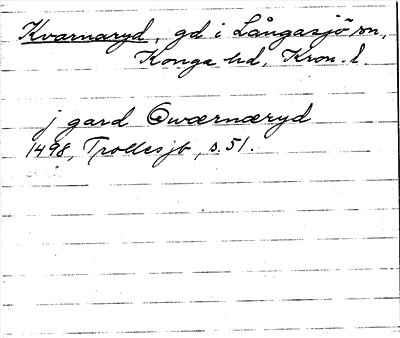 Kvarnaryd, gd i Långasjö sn,
Konga hd, Kron. l.
j gard Qwærnæryd
1498, Trollesjb, s. 51.